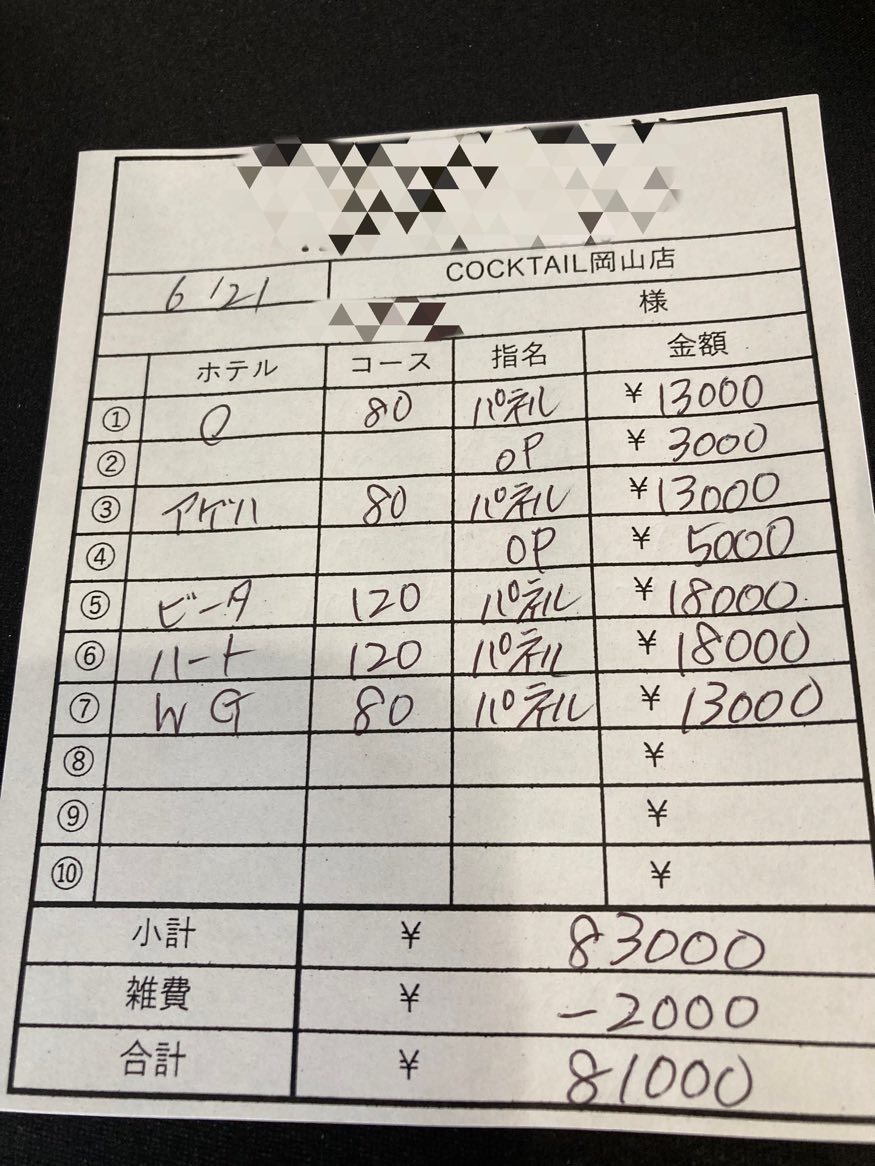 COCKTAIL岡山店
6/21
様
ホテル コース 指名 金額
① Q 80 パネル ¥ 13000
② OP ¥ 3000
③ アゲハ 80 パネル ¥ 13000
④ OP ¥ 5000
⑤ ビータ 120 パネル ¥ 18000
⑥ ハート 120 パネル ¥ 18000
⑦ WG 80 パネル ¥ 13000
⑧ ¥
⑨ ¥
⑩ ¥
小計 ¥ 83000
雑費 ¥ -2000
合計 ¥ 81000